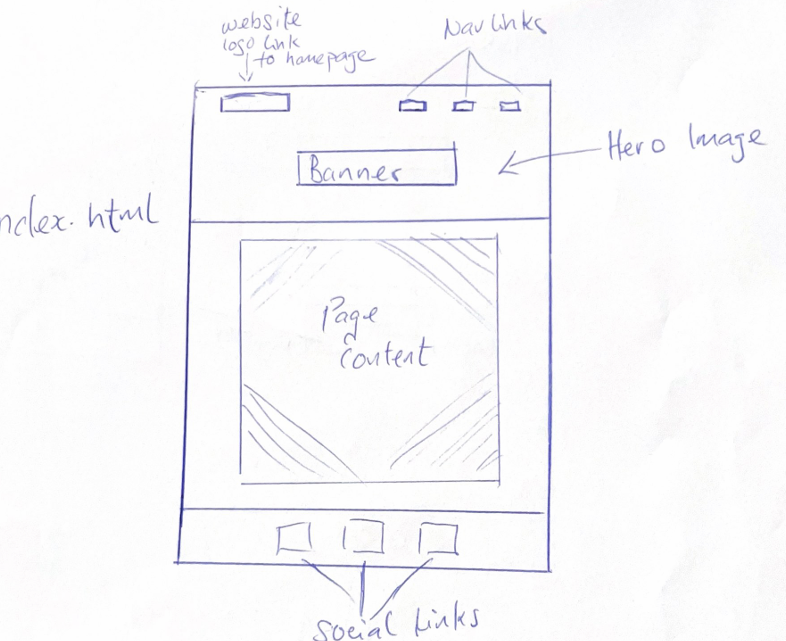 website
logo link
to homepage
Nav links
Hero Image
Banner
index.html
Page
Content
Social Links